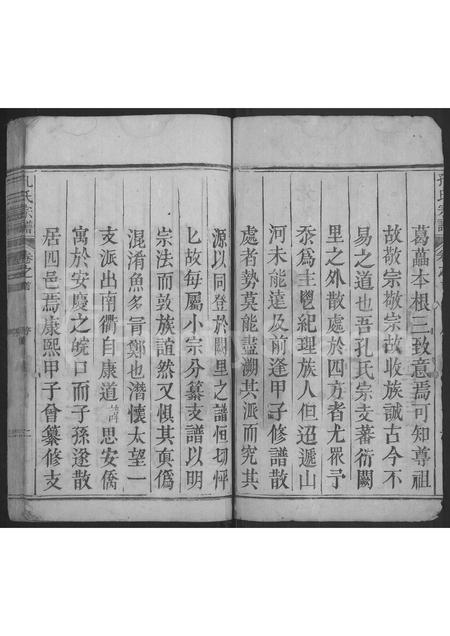 葛藟本根三致意焉可知尊祖
故敬宗敬宗故收族誠古今不
易之道也吾孔氏宗支蕃衍闕
里之外散處於四方者尤眾予
忝爲主鬯紀理族人但迢遞山
河未能遠及前逢甲子修譜散
處者勢莫能盡溯其派而究其
源以同登於闕里之譜恒切怦
匕故每屬小宗分纂支譜以明
宗法而敦族誼然又惧其真僞
混淆魚多胥鄭也潛懷太望一
支派出南衢自康道諱思安僑
寓於安慶之皖口而子孫遂散
居四邑焉康熙甲子曾纂修支
孔氏宗譜
卷之首